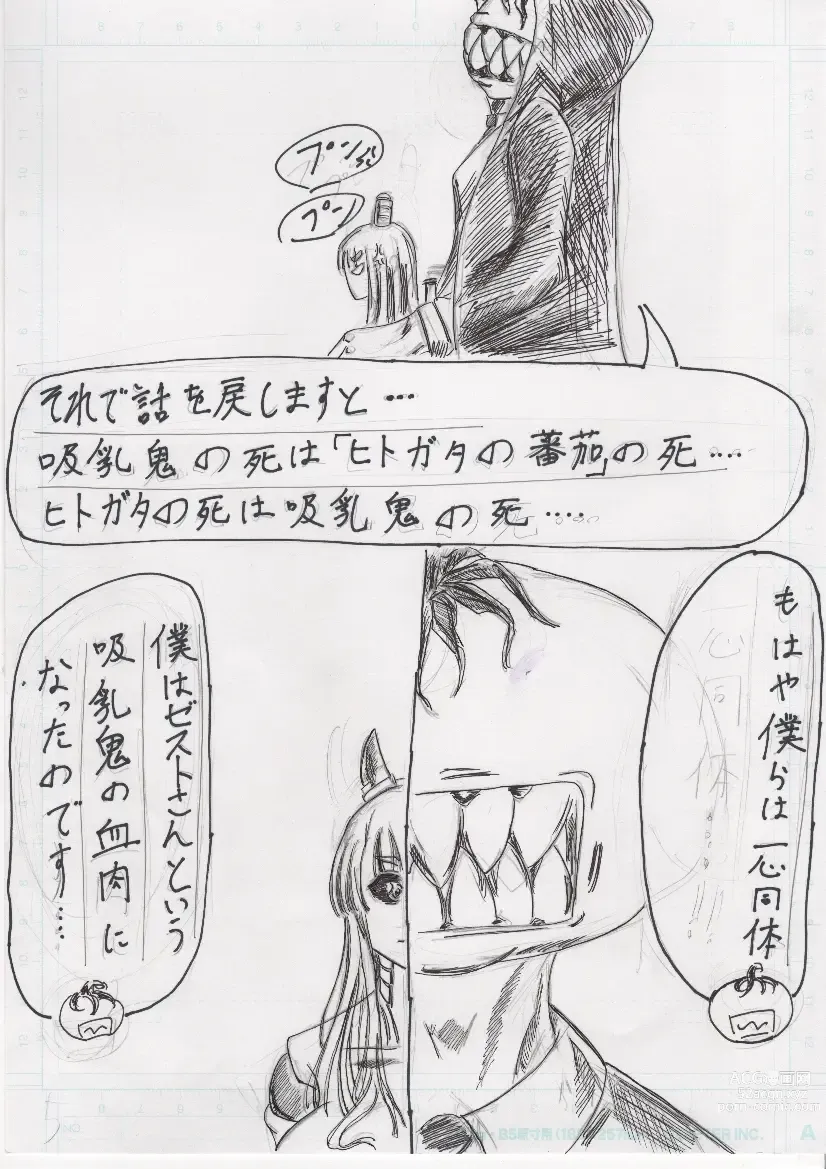 プンッ
プン
それで話を戻しますと…
吸乳鬼の死は「ヒトガタの蕃茄」の死…
ヒトガタの死は吸乳鬼の死…
もはや僕らは
一心同体
僕はゼストさんという
吸乳鬼の血肉に
なったのです…